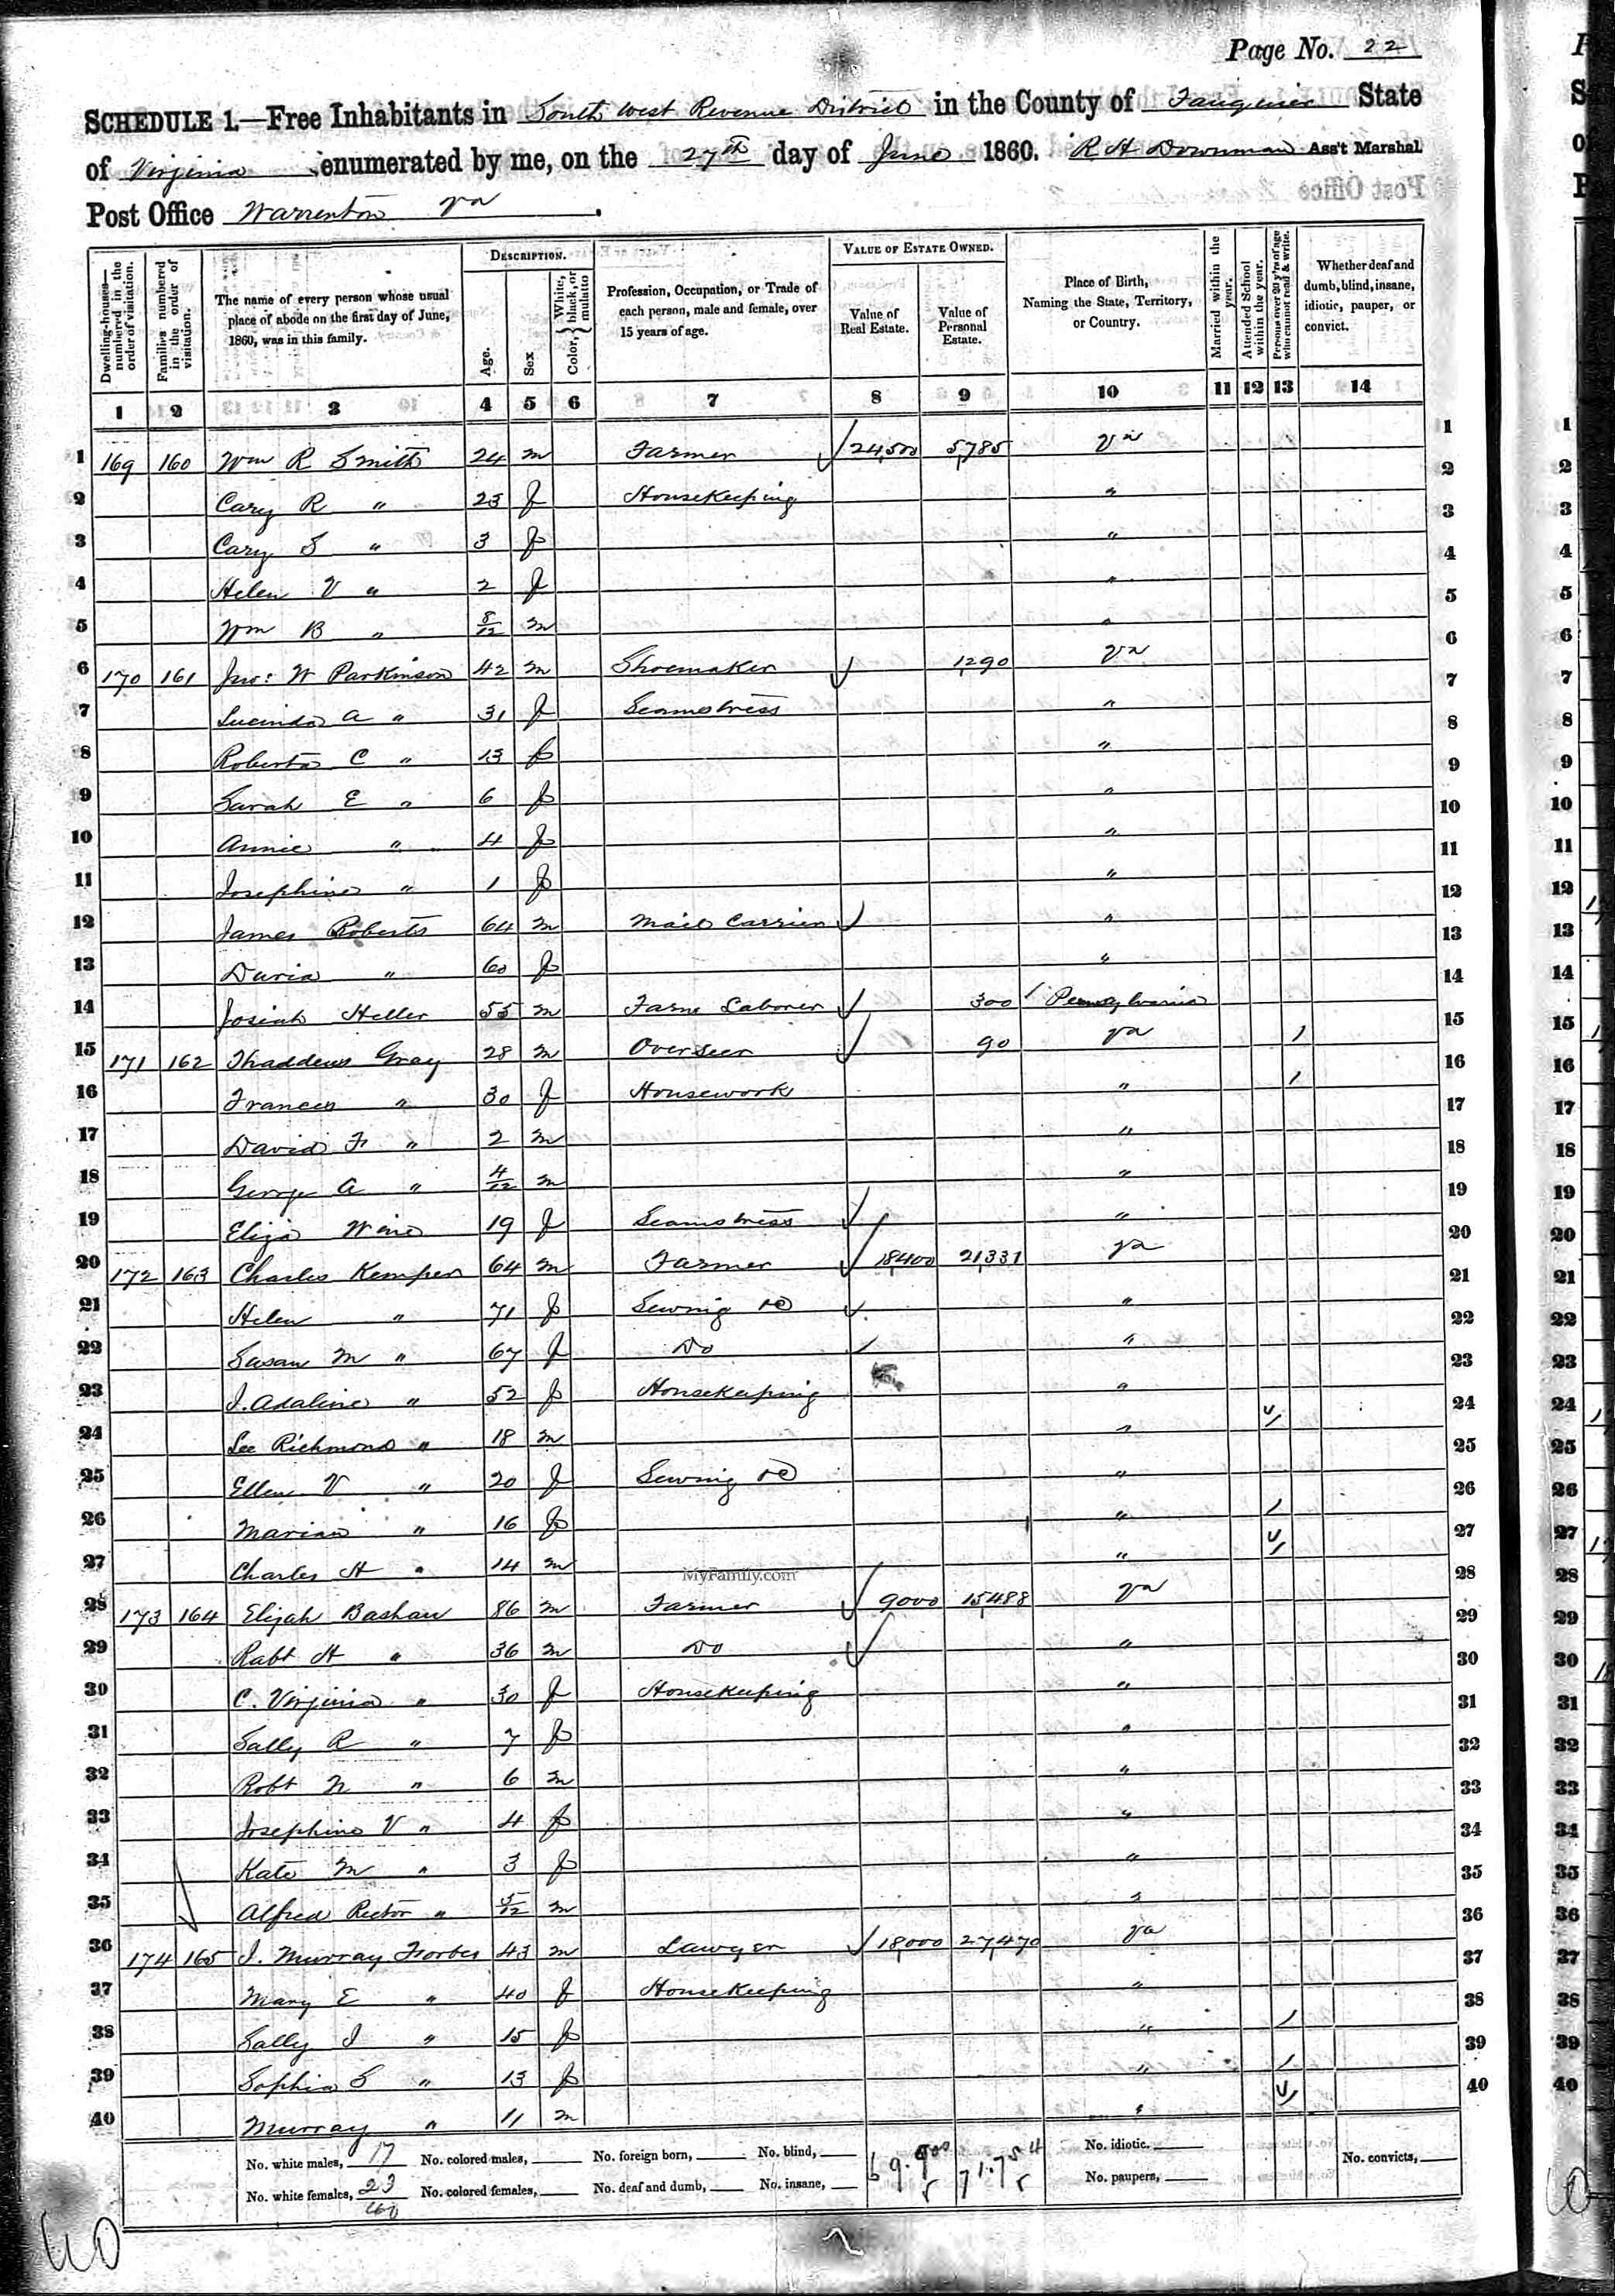 Page No. 22
SCHEDULE 1.—Free Inhabitants in South West Revenue District in the County of Fauquier State
of Virginia enumerated by me, on the 27th day of June 1860. R H Downman Ass't Marshal
Post Office Warrenton Va
Dwelling-houses—numbered in the order of visitation. Families numbered in the order of visitation. The name of every person whose usual place of abode on the first day of June, 1860, was in this family. DESCRIPTION. Age. Sex Color, White, black, or mulatto Profession, Occupation, or Trade of each person, male and female, over 15 years of age. VALUE OF ESTATE OWNED. Value of Real Estate. Value of Personal Estate. Place of Birth, Naming the State, Territory, or Country. Married within the year. Attended School within the year. Persons over 20 y'rs of age who cannot read & write. Whether deaf and dumb, blind, insane, idiotic, pauper, or convict.
1 2 3 4 5 6 7 8 9 10 11 12 13 14
1 169 160 Wm R Smith 24 m Farmer 24,500 5,785 Va 1
2 Cary R " 23 f Housekeeping " 2
3 Cary S " 3 f " 3
4 Helen V " 2 f " 4
5 Wm B " 8/12 m " 5
6 170 161 Jno: W Parkinson 42 m Shoemaker 1,290 Va 6
7 Lucinda A " 31 f Seamstress " 7
8 Roberta C " 13 f " 8
9 Sarah E " 6 f " 9
10 Annie " 4 f " 10
11 Josephine " 1 f " 11
12 James Roberts 64 m Mail Carrier " 12
13 " 60 f " 13
14 Josiah Heller 55 m Farm Laborer 300 Pennsylvania 14
15 171 162 Thaddeus Gray 28 m Overseer 90 Va / 15
16 Frances " 30 f Housework " / 16
17 David F " 2 m " 17
18 George A " 4/12 m " 18
19 Eliza 19 f Seamstress " 19
20 172 163 Charles Kemper 64 m Farmer 18,400 21,331 Va 20
21 Helen " 71 f Sewing &c " 21
22 Susan M " 67 f Do " 22
23 J. Adaline " 52 f Housekeeping " 23
24 Lee Richmond " 18 m " 24
25 Ellen V " 20 f Sewing &c " 25
26 Marian " 16 f " / 26
27 Charles H " 14 m " 27
MyFamily.com
28 173 164 Elijah Bashaw 86 m Farmer 9000 15,488 Va 28
29 Robt H " 36 m Do " 29
30 C. Virginia " 30 f Housekeeping " 30
31 Sally R " 7 f " 31
32 Robt N " 6 m " 32
33 Josephine V " 4 f " 33
34 Kate M " 3 f " 34
35 Alfred Rector " 5/12 m " 35
36 174 165 J. Murray Forbes 43 m Lawyer 18,000 27,470 Va 36
37 Mary E " 40 f Housekeeping " 37
38 Sally J " 15 f " / 38
39 Sophia S " 13 f " / 39
40 Murray " 11 m " 40
No. white males, 17 No. colored males, No. foreign born, No. blind, No. idiotic. No. convicts,
No. white females, 23 No. colored females, No. deaf and dumb, No. insane, No. paupers,
40